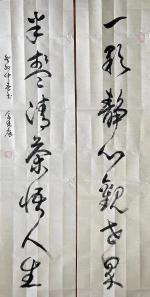 一颗静心观世界
半盏清茶悟人生